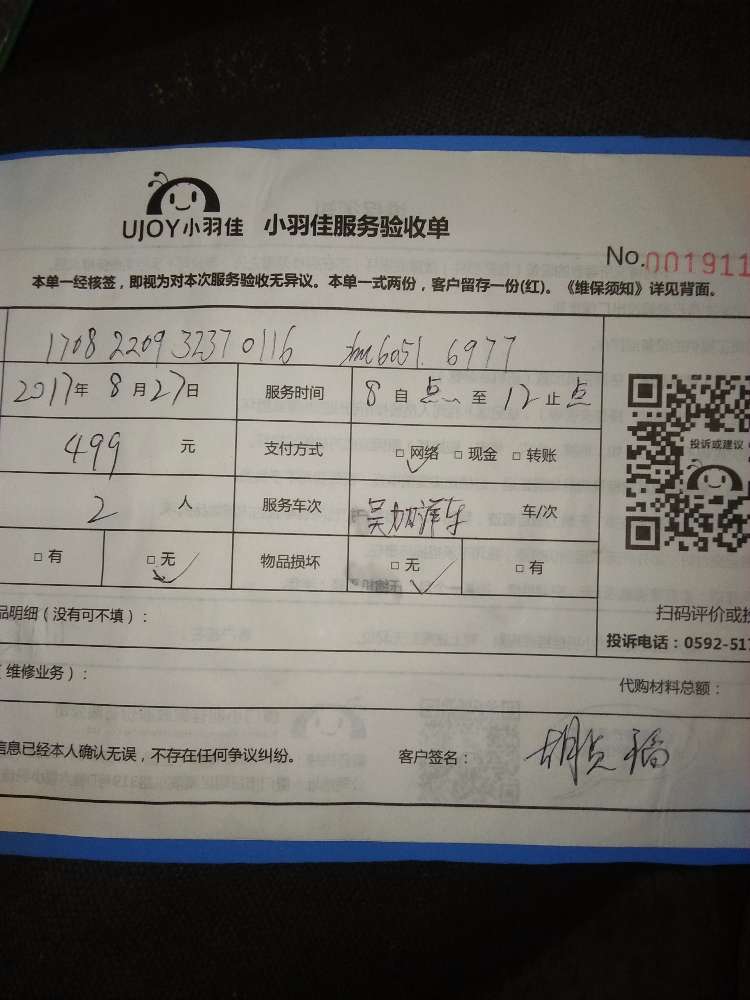 UJOY小羽佳 小羽佳服务验收单
No.001911
本单一经核签，即视为对本次服务验收无异议。本单一式两份，客户留存一份(红)。《维保须知》详见背面。
1708 2209 3237 0116 6051. 6977
2017年 8月27日 服务时间 8自点 至 12止点
投诉或建议
499 元 支付方式 □网络 □现金 □转账
2 人 服务车次 车/次
□有 □无 物品损坏 □无 □有
品明细（没有可不填）：
扫码评价或投
投诉电话：0592-517
（维修业务）：
代购材料总额：
信息已经本人确认无误，不存在任何争议纠纷。 客户签名：